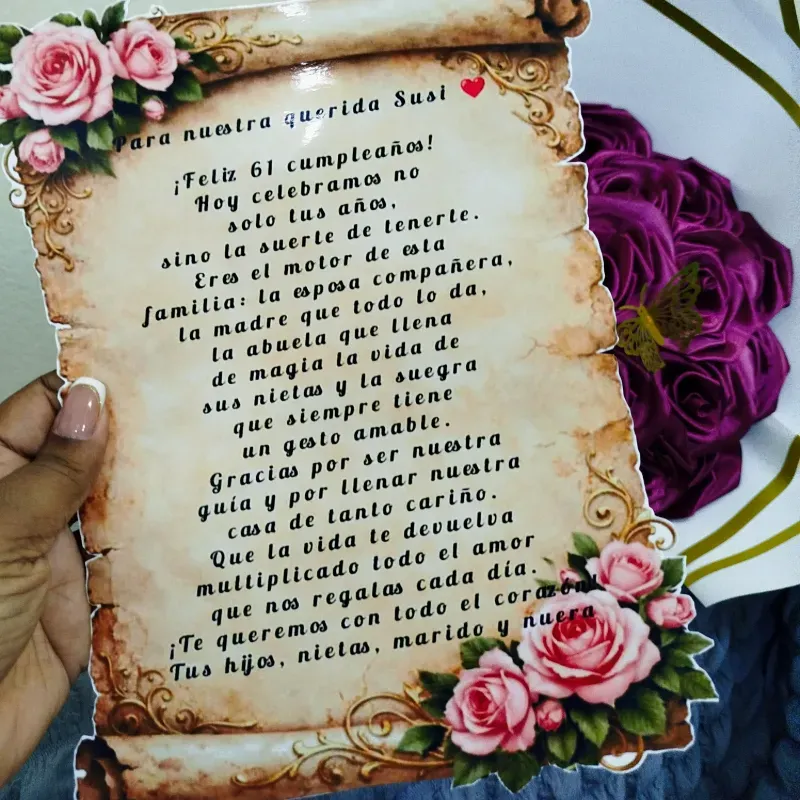 Para nuestra querida Susi ❤️
¡Feliz 61 cumpleaños!
Hoy celebramos no
solo tus años,
sino la suerte de tenerte.
Eres el motor de esta
familia: la esposa compañera,
la madre que todo lo da,
la abuela que llena
de magia la vida de
sus nietas y la suegra
que siempre tiene
un gesto amable.
Gracias por ser nuestra
guía y por llenar nuestra
casa de tanto cariño.
Que la vida te devuelva
multiplicado todo el amor
que nos regalas cada día.
¡Te queremos con todo el corazón!
Tus hijos, nietas, marido y nuera